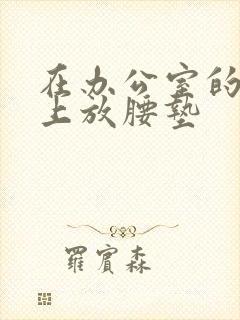 在办公室的
上放腰墊
羅賓森